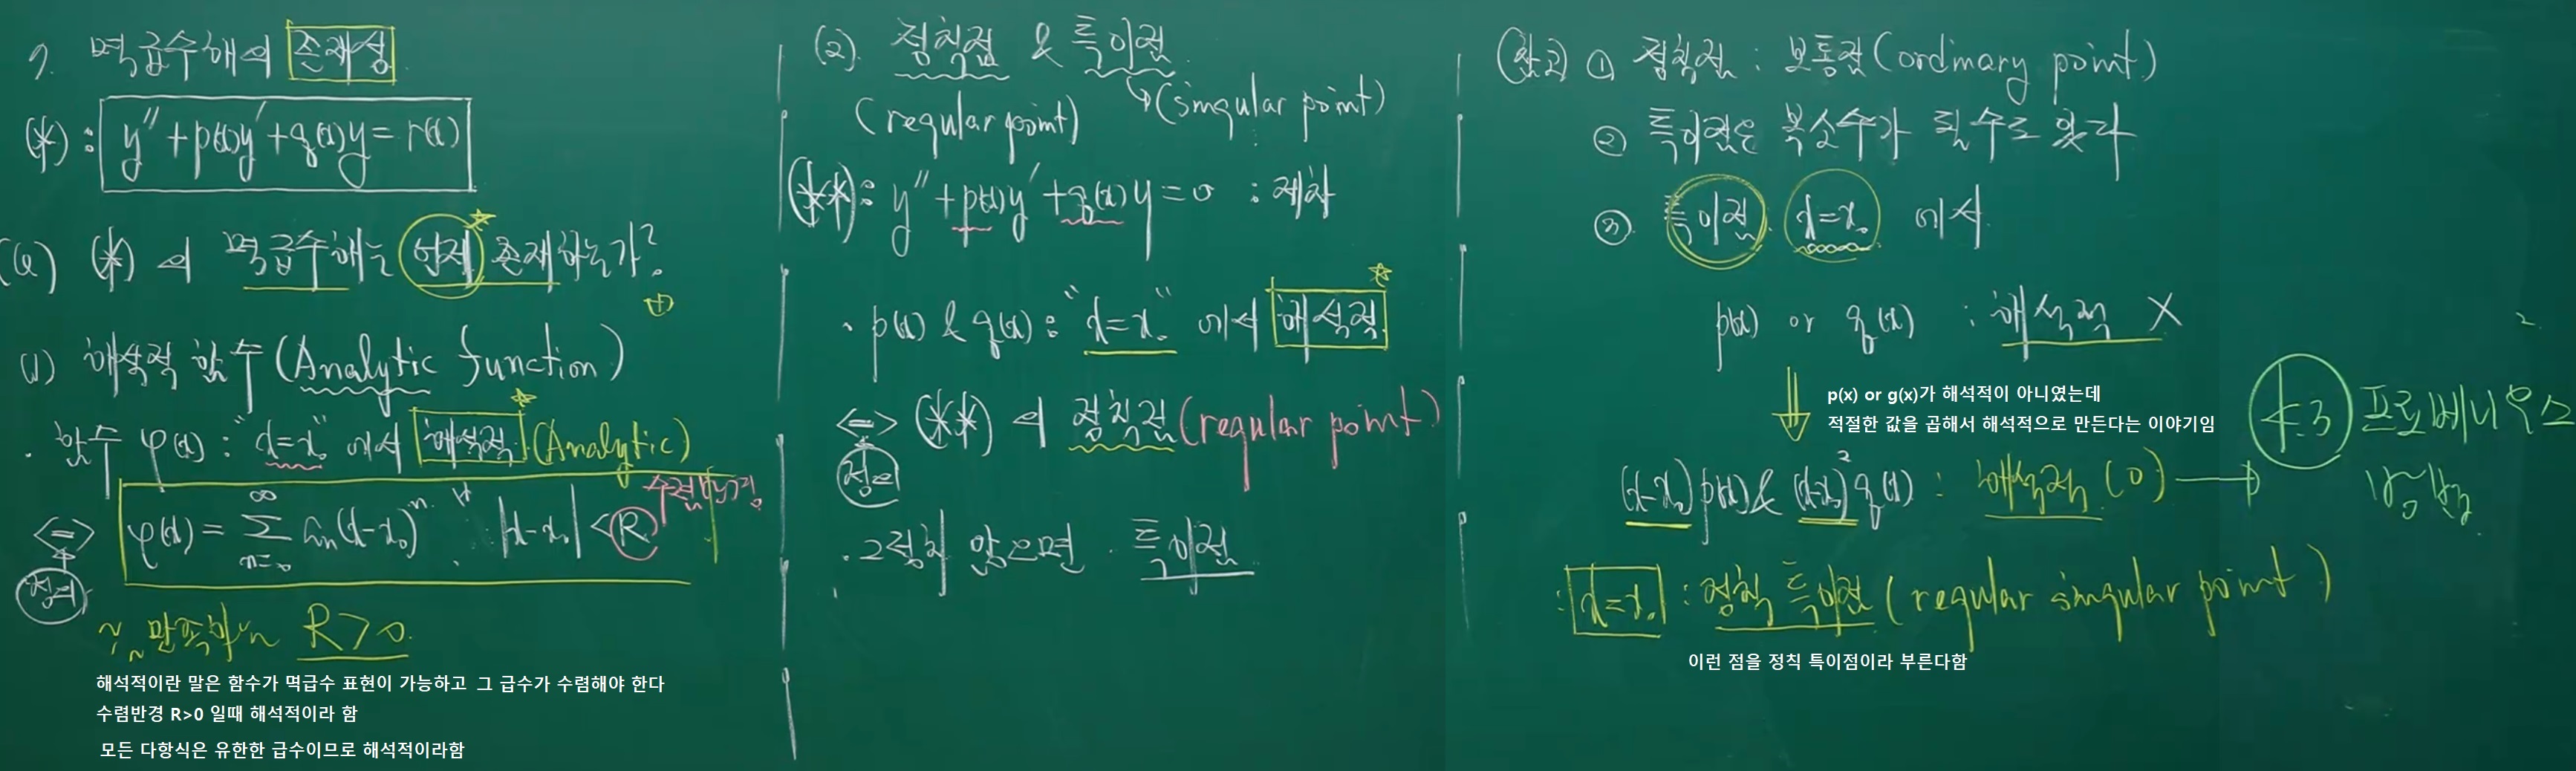 7. 멱급수해의 존재성
(*) : y'' + p(x)y' + q(x)y = r(x)
(Q) (*)의 멱급수해는 언제 존재하는가?
(1) 해석적 함수 (Analytic function)
· 함수 φ(x) : "x=x₀"에서 해석적 (Analytic)
⇔ φ(x) = ∑ aₙ(x-x₀)ⁿ, |x-x₀| < R 수렴반경
n=0 ∞
정의
만족하는 R>0.
해석적이란 말은 함수가 멱급수 표현이 가능하고 그 급수가 수렴해야 한다
수렴반경 R>0 일때 해석적이라 함
모든 다항식은 유한한 급수이므로 해석적이라함
(2) 정칙점 & 특이점
(regular point) (singular point)
(**) : y'' + p(x)y' + q(x)y = 0 : 제차
· p(x) & q(x) : "x=x₀"에서 해석적
⇔ (**)의 정칙점 (regular point)
정의
· 그렇지 않으면 특이점
(참고) ① 정칙점 : 보통점 (ordinary point)
② 특이점은 복소수가 될 수도 있다
③ 특이점 x=x₀ 에서
p(x) or q(x) : 해석적 X
p(x) or g(x)가 해석적이 아니였는데
적절한 값을 곱해서 해석적으로 만든다는 이야기임
(x-x₀)p(x) & (x-x₀)²q(x) : 해석적 (O) → 4.3 프로베니우스
방법
: x=x₀ : 정칙 특이점 (regular singular point)
이런 점을 정칙 특이점이라 부른다함